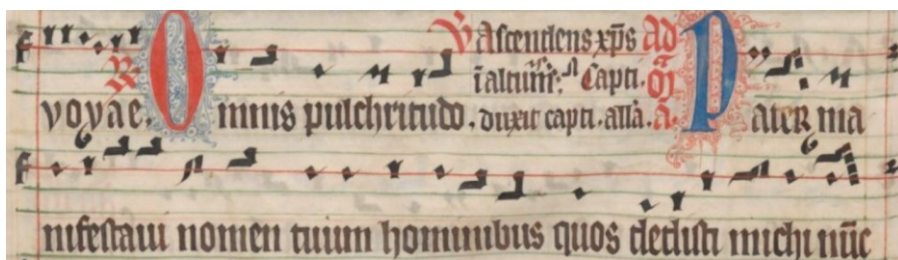 ℣ Ascendens xp̄s ad
in altum. Capti. mͣ
vovae. ℟ Omnis pulchritudo. duxit capti. alla. a. Pater ma
nifestaui nomen tuum hominibus quos dedisti michi nūc